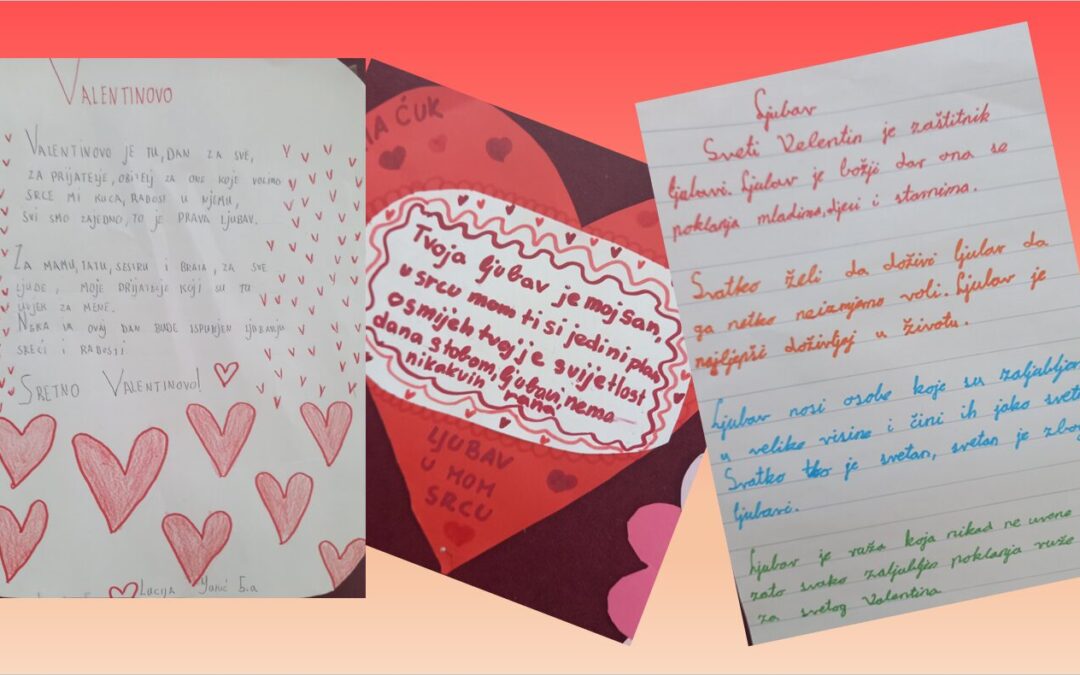 VALENTINOVO
VALENTINOVO JE TU, DAN ZA SVE,
ZA PRIJATELJE, OBITELJ ZA ONE KOJE VOLIMO
SRCE MI KUCA, RADOST U NJEMU,
SVI SMO ZAJEDNO, TO JE PRAVA LJUBAV.
ZA MAMU, TATU, SESTRU I BRATA, ZA SVE
LJUDE, MOJE PRIJATELJE KOJI SU TU
UVIJEK ZA MENE.
NEKA OVAJ DAN BUDE ISPUNJEN LJUBAVLJU
SREĆI I RADOSTI
SRETNO VALENTINOVO!
Lucija 5.a
ĆUK
Tvoja ljubav je moj san,
u srcu mom ti si jedini plan
osmijeh tvoj je svijetlost
dana s tobom, ljubavi, nema
nikakvih
rana
LJUBAV
U MOM
SRCU
Ljubav
Sveti Velentin je zaštitnik
ljubavi. Ljubav je božji dar ona se
poklanja mladima, djeci i starima.
Svatko želi da doživi ljubav da
ga netko neizmjerno voli. Ljubav je
najljepši doživljaj u životu.
Ljubav nosi osobe koje su zaljubljen
u velike visine i čini ih jako sveta
Svatko tko je svetan, svetan je zbog
ljubavi.
Ljubav je ruža koja nikad ne uvene
zato svako zaljubljen poklanja ruže
za svetog Valentina